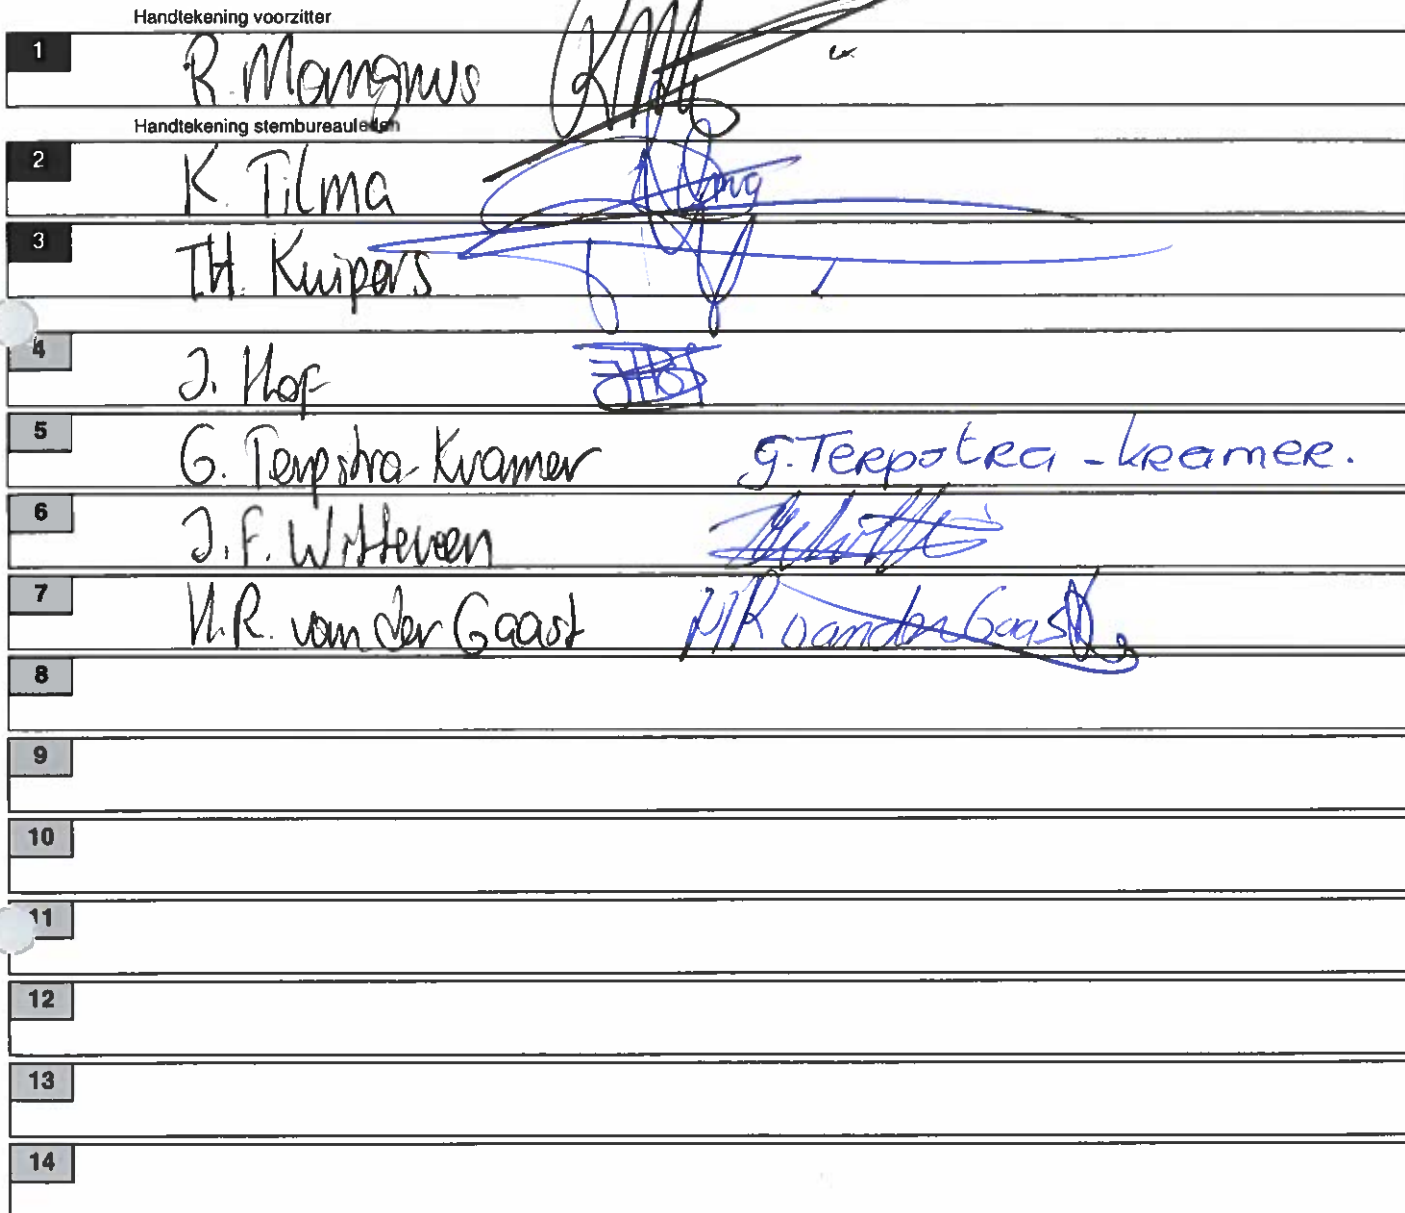 Handtekening voorzitter
1 R. Mangnus
Handtekening stembureauleden
2 K. Tilma
3 TH. Kuipers
4 J. Hof
5 G. Terpstra-Kramer G. Terpstra - kramer.
6 J.F. Witteveen
7 H.R. van der Gaast HR van der Gaast
8
9
10
11
12
13
14